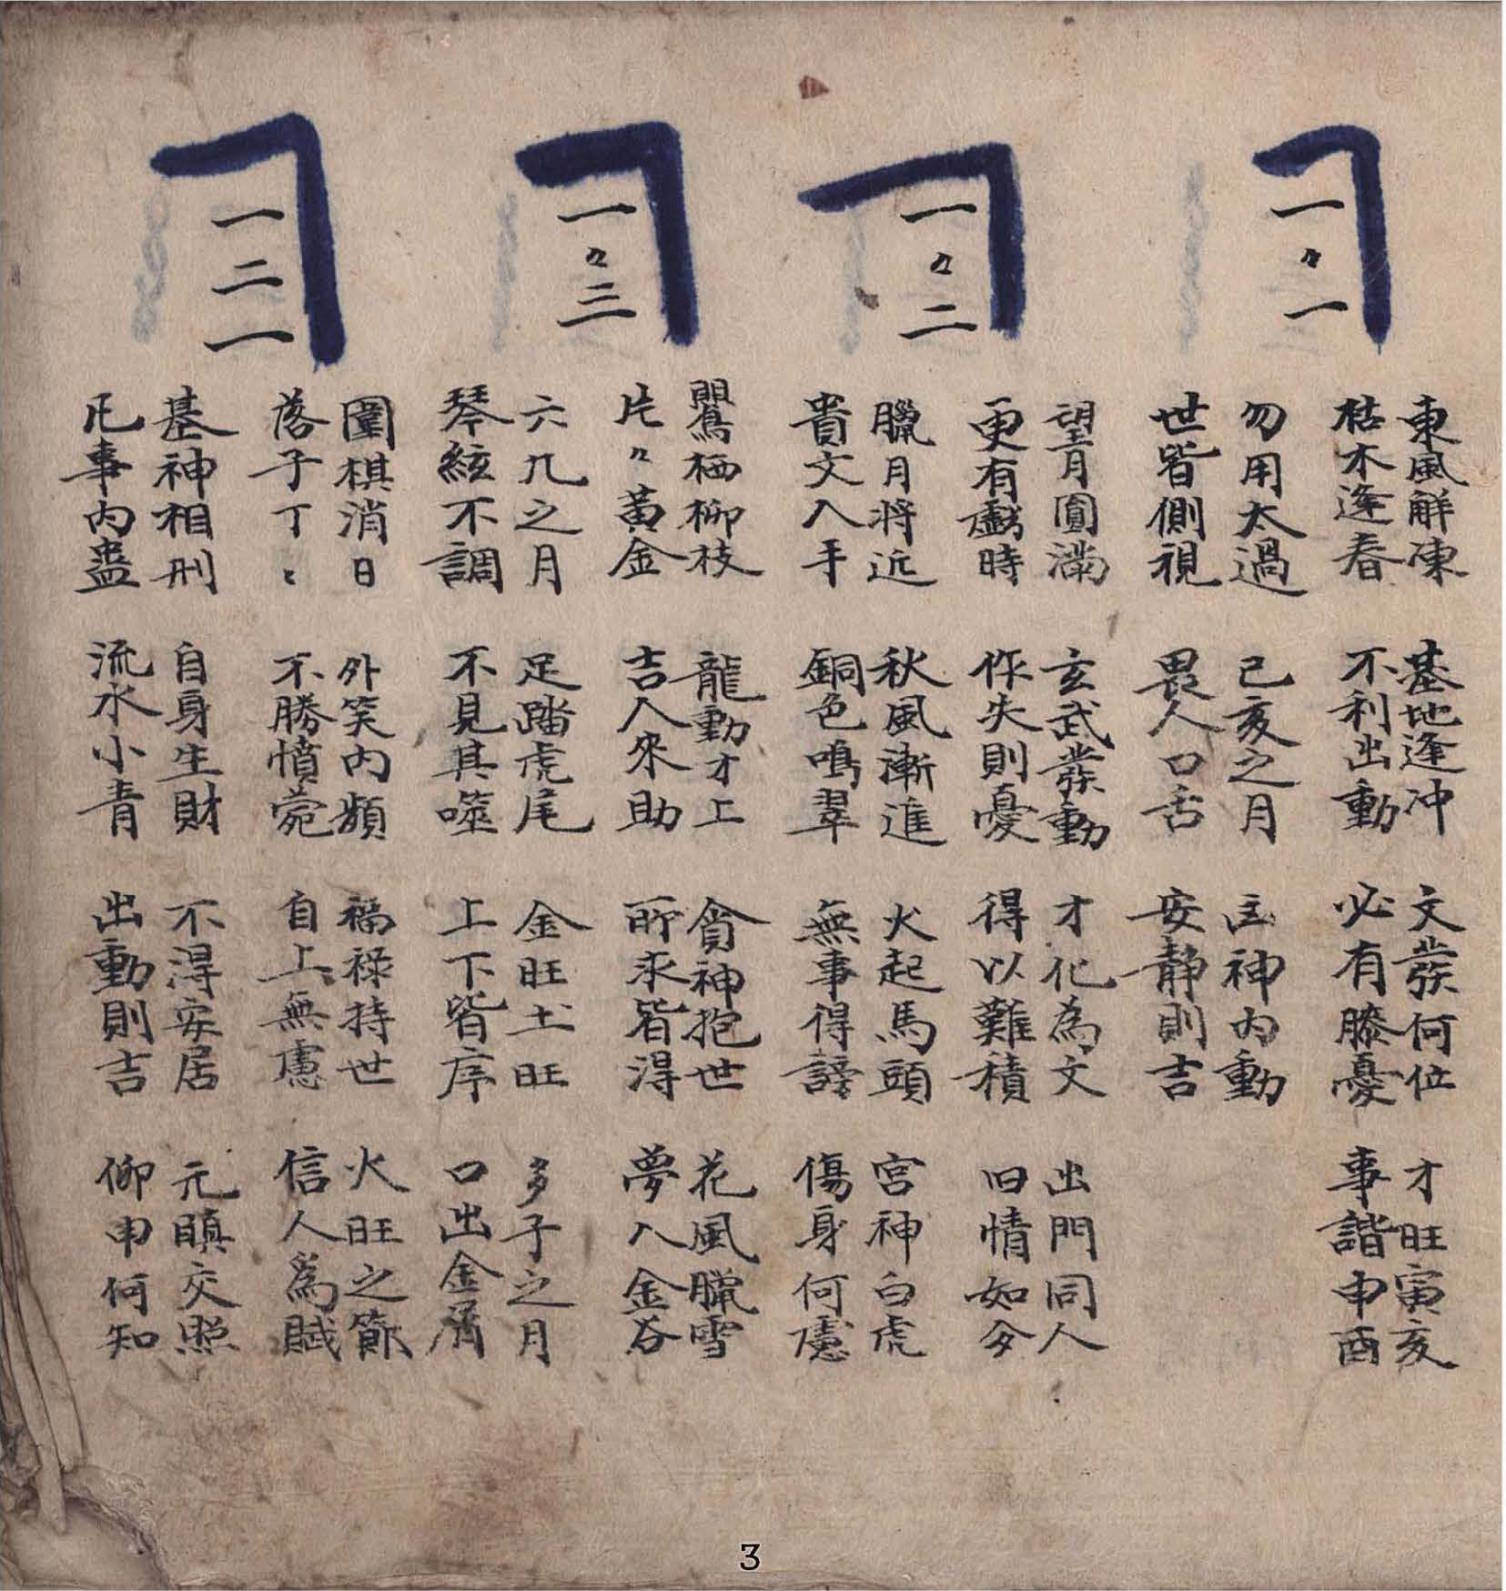 一々一
東風解凍 基地逢冲 文發何位 才旺寅亥
枯木逢春 不利出動 必有膝憂 事諧申酉
勿用太過 己亥之月 神内動
世皆側視 畏人口舌 安静則吉
一々二
望月圓滿 玄武發動 才化為文 出門同人
更有虧時 作失則憂 得以難積 旧情如今
臘月将近 秋風漸進 火起馬頭 宮神白虎
貴文入手 銅色鳴翠 無事得謗 傷身何慮
一々三
鸎栖柳枝 龍動才上 貪神抱世 花風臘雪
片々黃金 吉人來助 所求皆得 夢入金谷
六九之月 足踏虎尾 金旺土旺 多子之月
琴絃不調 不見其噬 上下皆序 口出金屑
一二一
圍棋消日 外笑内頻 福祿持世 火旺之節
落子丁々 不勝憤菀 自上無慮 信人為賊
基神相刑 自身生財 不得安居 元瞋交照
凡事内蛊 流水小青 出動則吉 仰申何知
3